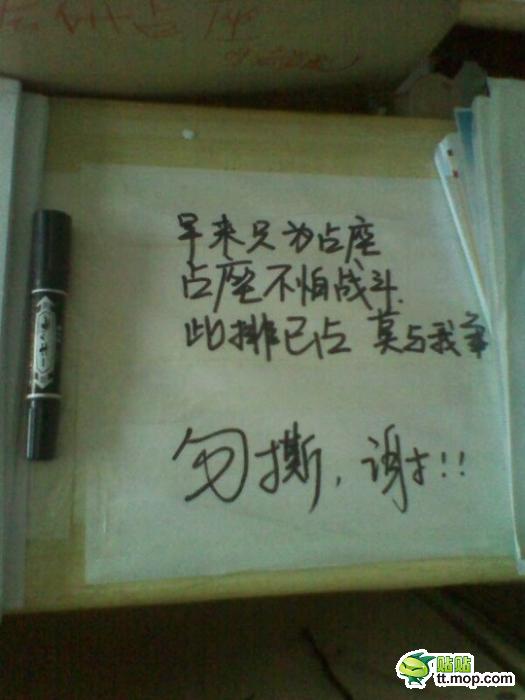 占座
早来只为占座
占座不怕战斗.
此排已占 莫与我争
勿撕,谢!!
贴贴
tt.mop.com